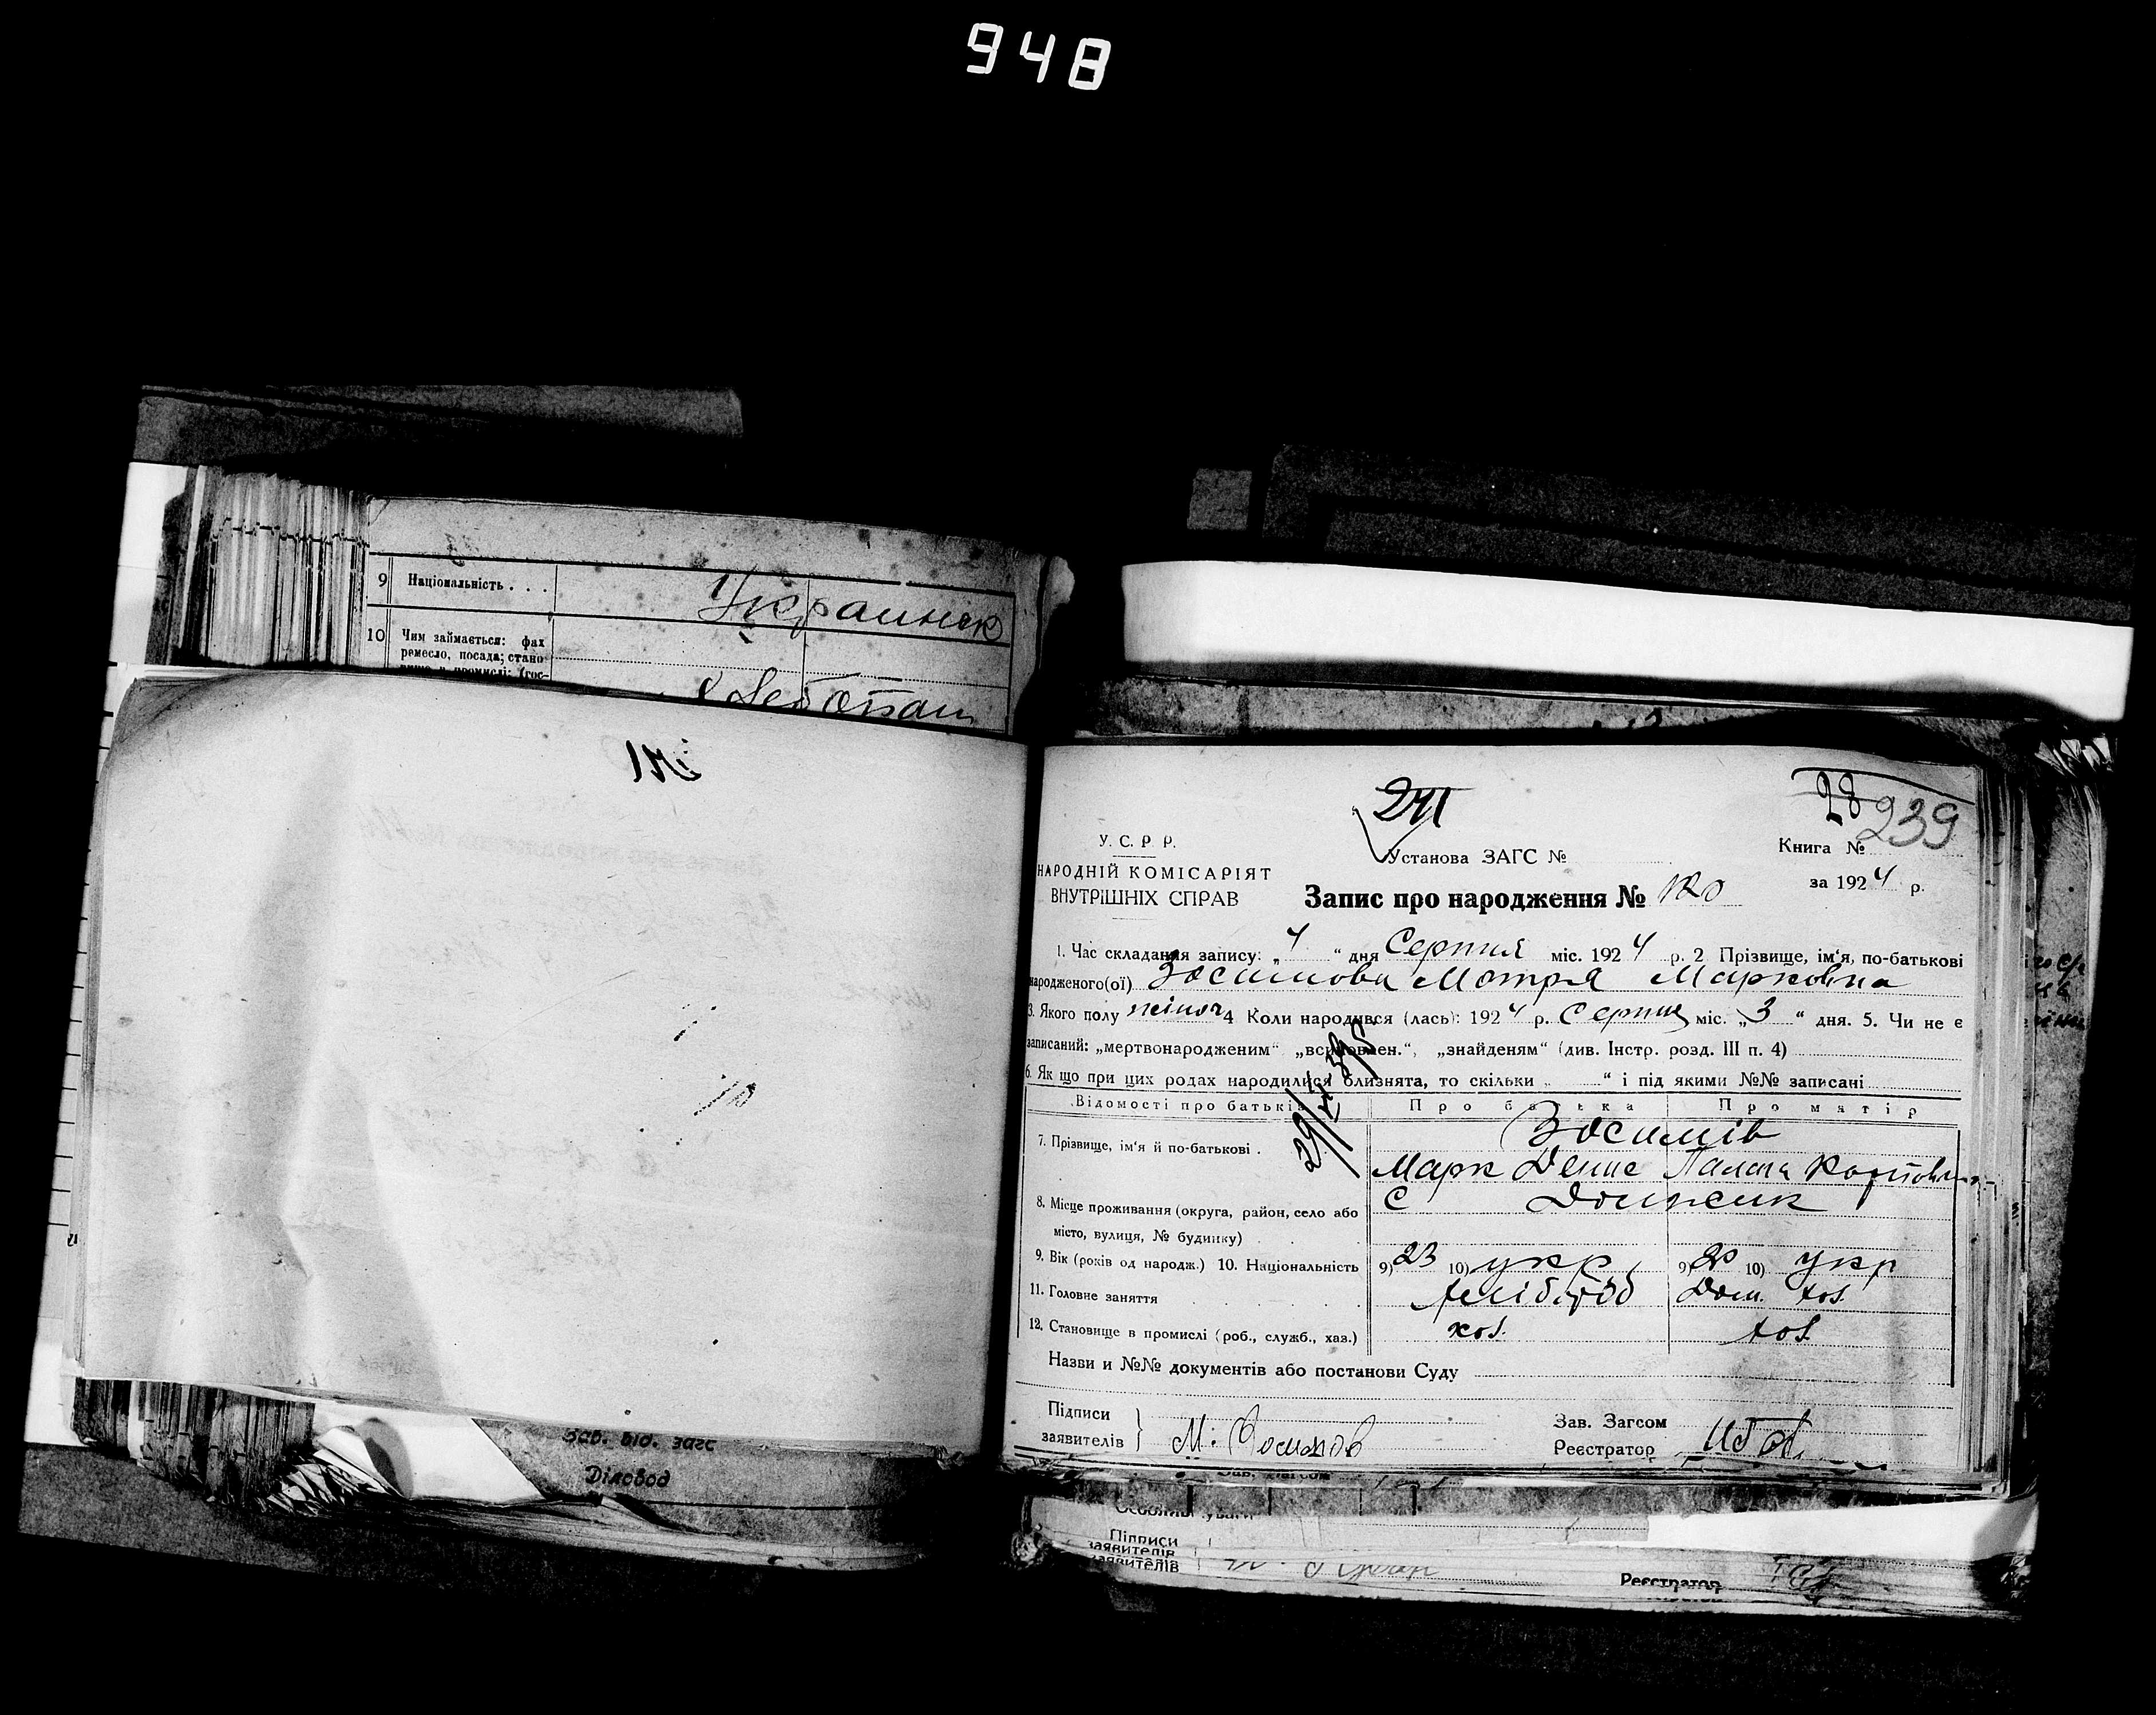 948
9 Національність . . .
Украинск
10 Чим займається: фах
ремесло, посада; стано
Зав. від. загс
Діловод
241
28
239
У. С. Р. Р.
НАРОДНІЙ КОМІСАРІЯТ
ВНУТРІШНІХ СПРАВ
Установа ЗАГС №
Книга №
за 1924 р.
Запис про народження № 120
1. Час складання запису: „4“ дня Серпня міс. 1924 р. 2 Прізвище, ім'я, по-батькові
народженого(ої) Зосимова Мотря Марковна
3. Якого полу жіноч 4 Коли народився (лась): 1924 р. Серпня міс. „3“ дня. 5. Чи не є
записаний: „мертвонародженим“ „всиновлен.“, „знайденям“ (див. Інстр. розд. III п. 4)
6. Як що при цих родах народилися близнята, то скільки „ “ і під якими №№ записані
Відомості про батьків Про батька Про матір
7. Прізвище, ім'я й по-батькові . Зосимів
Марк Денис Палага Карповна
8. Місце проживання (округа, район, село або
місто, вулиця, № будинку) С Должик
9. Вік (років од народж.) 10. Національність 9) 23 10) укр, 9) 20 10) укр
11. Головне заняття Хлібороб Дом. хоз.
12. Становище в промислі (роб., служб., хаз.) хоз. хоз.
Назви и №№ документів або постанови Суду
Підписи
заявителів М. Зосимов
Зав. Загсом
Реєстратор
Підписи
заявителів
заявителів
Реєстратор